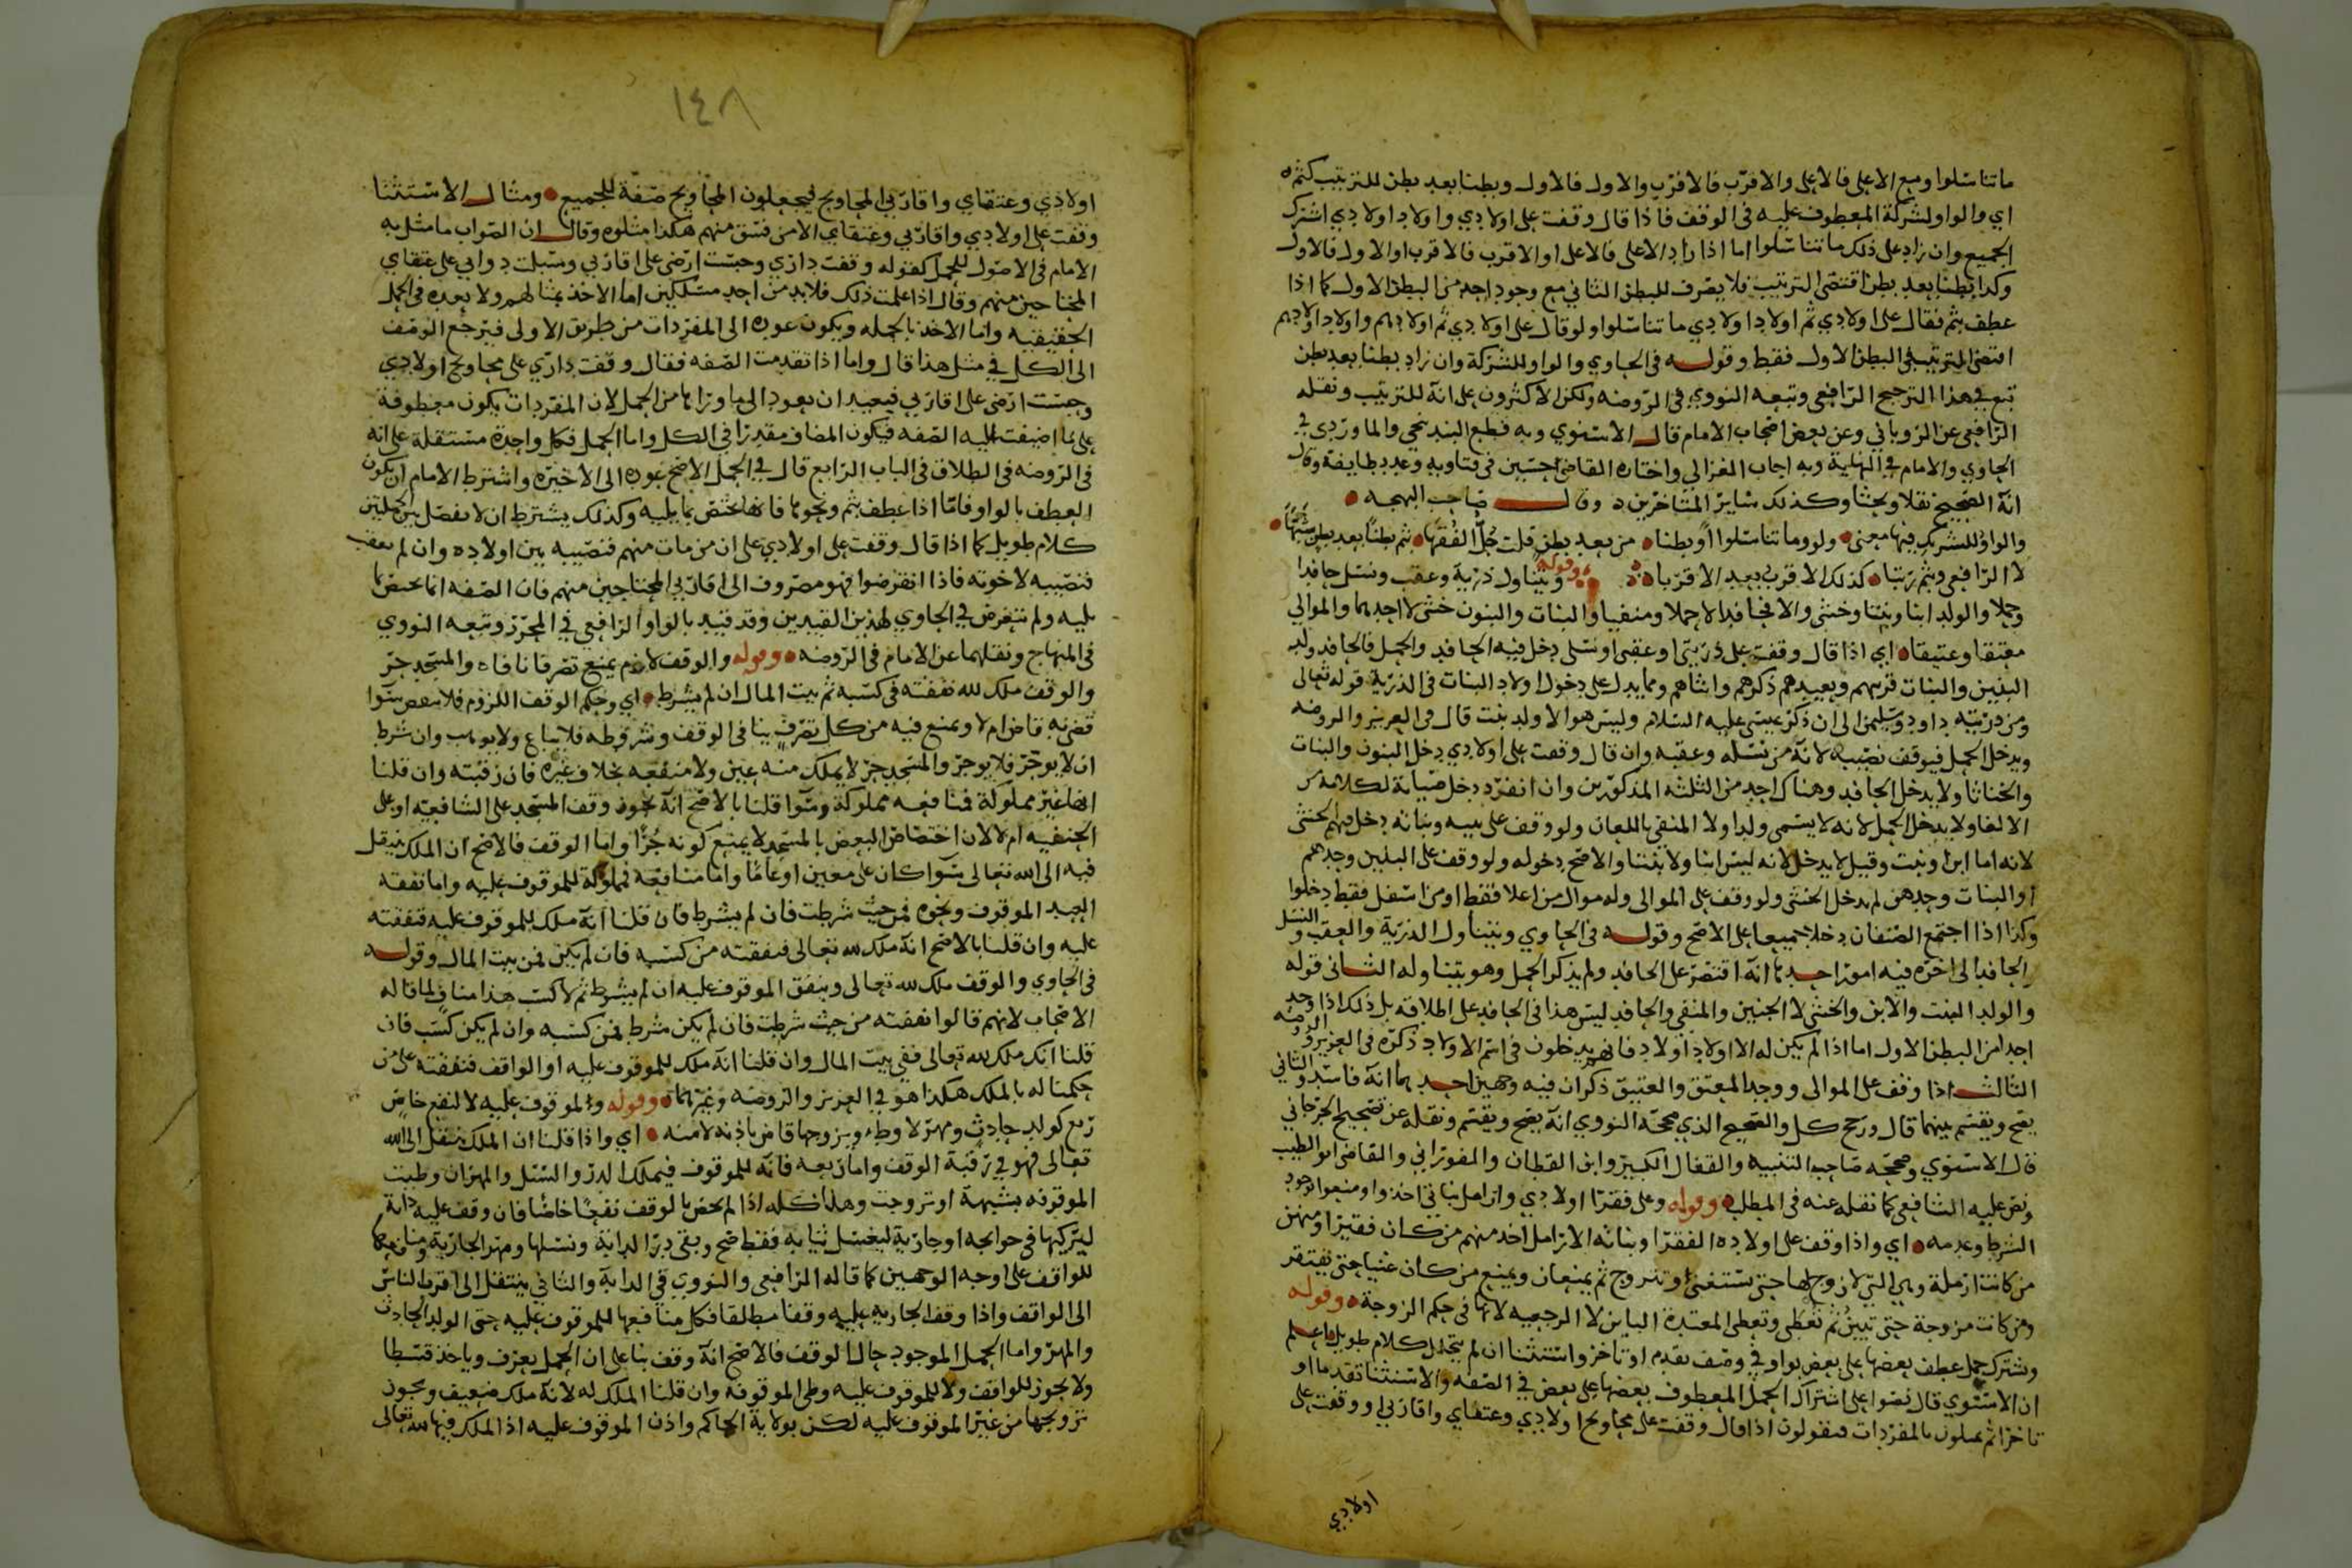 ما تناسلوا ومع الاعلى فالاعلى والاقرب فالاقرب والاول فالاول وبطنا بعد بطن للترتيب كثم
اي والواو لشركة المعطوف عليه في الوقف فاذا قال وقفت على اولادي واولاد اولادي اشترك
الجميع وان زاد على ذلك ما تناسلوا اما اذا زاد الاعلى فالاعلى او الاقرب فالاقرب او الاول فالاول
وكذا بطنا بعد بطن اقتضى الترتيب فلا يصرف للبطن الثاني مع وجود احد من البطن الاول كما اذا
عطف بثم فقال على اولادي ثم اولاد اولادي ما تناسلوا ولو قال على اولادي ثم اولادهم واولاد اولادهم
اقتضى الترتيب في البطن الاول فقط وقوله في الحاوي والواو للشركة وان زاد بطنا بعد بطن
تبع في هذا الترجيح الرافعي وتبعه النووي في الروضه ولكن الاكثرون على انه للترتيب ونقله
الرافعي عن الزوياني وعن بعض اصحاب الامام قال الاسنوي وبه قطع البندنيجي والماوردي في
الحاوي والامام في النهاية وبه اجاب الغزالي واختاره القاضي حسين في فتاويه وعدد طايفة وقال
انه الصحيح نقلا وبحثا وكذلك ساير المتاخرين وقال صاحب البهجه
والواو للتشريك فيها معنى ولو وما تناسلوا او بطنا من بعد بطن قلت جل الفقها ثم بطنا بعد بطن
لا الرافعي وثم رتبا كذلك الاقرب بعد الاقربا وقوله ويتناول ذرية وعقب ونسل حافدا
وحملا والولد ابنا وبنتا وخنثى والا فحافدا لا حملا ومنفيا والبنات والبنون خنثى لا احدهما والموالي
معتقا وعتيقا اي اذا قال وقفت على ذريتي او عقبي او نسلي دخل فيه الحافد والحمل فالحافد ولد
البنين والبنات قريبهم وبعيدهم ذكرهم وانثاهم ومما يدل على دخول اولاد البنات في الذرية قوله تعالى
ومن ذريته داود وسليمن الى ان ذكر عيسى عليه السلام وليس هو الا ولد بنت قال في العزيز والروضه
ويدخل الحمل فيوقف نصيبه لانه من نسله وعقبه وان قال وقفت على اولادي دخل البنون والبنات
والخناثا ولا يدخل الحافد وهناك احد من الثلثه المذكورين وان انفرد دخل صيانة لكلامه عن
الالغا ولا يدخل الحمل لانه لا يسمى ولدا ولا المنفي باللعان ولو وقف على بنيه وبناته دخل فيهم الخنثى
لانه اما ابن او بنت وقيل لا يدخل لانه ليس ابنا ولا بنتا والاصح دخوله ولو وقف على البنين وحدهم
او البنات وحدهن لم يدخل الخنثى ولو وقف على الموالي وله موال من اعلا فقط او من اسفل فقط دخلوا
وكذا اذا اجتمع الصنفان دخلا جميعا على الاصح وقوله في الحاوي ويتناول الذرية والعقب والنسل
الحافد الى اخره فيه امور احدها انه اقتصر على الحافد ولم يذكر الحمل وهو يتناوله الثاني قوله
والولد البنت والابن والخنثى لا الجنين والمنفي والحافد ليس هذا في الحافد على اطلاقه بل ذلك اذا وجد
احد من البطن الاول اما اذا لم يكن له الا اولاد اولاد فانهم يدخلون في اسم الاولاد ذكره في العزيز والروضه
الثالث اذا وقف على الموالي ووجد المعتق والعتيق ذكر ان فيه وجهين احدهما انه فاسد والثاني
يصح ويقسم بينهما قال ورجح كل والصحيح الذي صححه النووي انه يصح ويقسم ونقله عن تصحيح الجرجاني
قال الاسنوي وصححه صاحب التنبيه والقفال الكبير وابن القطان والفوراني والقاضي ابو الطيب
ونص عليه الشافعي كما نقله عنه في المطلب وقوله وعلى فقرا اولادي وارامل بناتي اخذوا ومنعوا لوجود
الشرط وعدمه اي واذا وقف على اولاده الفقرا وبناته الارامل اخذ منهم من كان فقيرا ومنهن
من كانت ارملة وهي التي لا زوج لها حتى تستغني او تتزوج ثم يمنعان ويمنع من كان غنيا حتى يفتقر
ومن كانت مزوجة حتى تبين ثم تعطى وتعطى المعتدة الباين لا الرجعيه لانها في حكم الزوجة وقوله
وتشترك جمل عطف بعضها على بعض بواو في وصف تقدم او تاخر واستثنا ان لم يتخلل كلام طويل اعلم
ان الاسنوي قال نصوا على اشتراك الجمل المعطوف بعضها على بعض في الصفه والاستثنا تقدما او
تاخرا ثم يمثلون بالمفردات فيقولون اذا قال وقفت على محاويج اولادي وعتقاي واقاربي او وقفت على
اولادي
١٤٨
اولادي وعتقاي واقاربي المحاويج فيجعلون المحاويج صفة للجميع ومثال الاستثنا
وقفت على اولادي واقاربي وعتقاي الا من فسق منهم هكذا مثلوه وقال ان الصواب ما مثل به
الامام في الاصول للجمل كقوله وقفت داري وحبست ارضي على اقاربي وسبلت دوابي على عتقاي
المحتاجين منهم وقال اذا علمت ذلك فلا بد من احد مسلكين اما الاخذ بمثالهم ولا يعده في الجمل
الحقيقيه واما الاخذ بالجمله ويكون عوده الى المفردات من طريق الاولى فيرجع الوصف
الى الكل في مثل هذا قال واما اذا تقدمت الصفه فقال وقفت داري على محاويج اولادي
وحبست ارضي على اقاربي فيبعد ان يعود الى ما وراها من الجمل لان المفردات يكون معطوفة
على ما اضيفت اليه الصفه فيكون المضاف مقدرا في الكل واما الجمل فكل واحدة مستقلة على انه
في الروضه في الطلاق في الباب الرابع قال في الجمل الاصح عوده الى الاخيره واشترط الامام ان يكون
العطف بالواو فاما اذا عطف بثم ونحوها فانها تختص بما يليه وكذلك يشترط ان لا يفصل بين الجملتين
كلام طويل كما اذا قال وقفت على اولادي على ان من مات منهم فنصيبه بين اولاده وان لم يعقب
فنصيبه لاخوته فاذا انقرضوا فهو مصروف الى اقاربي المحتاجين منهم فان الصفه انما تختص بما
يليه ولم يتعرض في الحاوي لهذين القيدين وقد قيد بالواو الرافعي في المحرر وتبعه النووي
في المنهاج ونقلهما عن الامام في الروضه وقوله والوقف لازم يمنع تصرفا نافاه والمسجد حر
والوقف ملك لله نفقته في كسبه ثم بيت المال ان لم يشرط اي وحكم الوقف اللزوم فلا ينقض سوا
قضى به قاض ام لا ويمنع فيه من كل تصرف ينافي الوقف وشروطه فلا يباع ولا يوهب وان شرط
ان لا يوجر فلا يوجر والمسجد حر لا يملك منه عين ولا منفعه بخلاف غيره فان رقبته وان قلنا
انها غير مملوكة فمنافعه مملوكة وسوا قلنا بالاصح انه يجوز وقف المسجد على الشافعيه او على
الحنفيه ام لا لان اختصاص البعض بالمسجد لا يمنع كونه حرا واما الوقف فالاصح ان الملك ينتقل
فيه الى الله تعالى سوا كان على معين او عاما واما منافعه فمملوكة للموقوف عليه واما نفقه
العبد الموقوف ونحوه فمن حيث شرطت فان لم يشرط فان قلنا انه ملك للموقوف عليه فنفقته
عليه وان قلنا بالاصح انه ملك لله تعالى فنفقته من كسبه فان لم يكن فمن بيت المال وقوله
في الحاوي والوقف ملك لله تعالى وينفق الموقوف عليه ان لم يشرط ثم لا كسب هذا مناف لما قاله
الاصحاب لانهم قالوا نفقته من حيث شرطت فان لم يكن شرط فمن كسبه وان لم يكن كسب فان
قلنا انه ملك لله تعالى ففي بيت المال وان قلنا انه ملك للموقوف عليه او الواقف فنفقته على من
حكمنا له بالملك هكذا هو في العزيز والروضه وغيرهما وقوله والموقوف عليه لا لنفع خاص
ريع كولد حادث ومهر لا وطء ويزوجها قاض باذنه لا منه اي واذا قلنا ان الملك ينتقل الى الله
تعالى فهو في رقبة الوقف واما ريعه فانه للموقوف فيملك الدر والنسل والمهر ان وطيت
الموقوفه بشبهة او تزوجت وهذا كله اذا لم يخص بالوقف نفعا خاصا فان وقف عليه دابة
ليركبها في حوايجه او جارية ليغتسل ثيابه فقط صح وبقي در الدابة ونسلها ومهر الجارية ومنافعها
للواقف على اوجه الوجهين كما قاله الرافعي والنووي في الدابة والثاني ينتقل الى اقرب الناس
الى الواقف واذا وقف الجاريه عليه وقفا مطلقا فكل منافعها للموقوف عليه حتى الولد الحادث
والمهر واما الحمل الموجود حال الوقف فالاصح انه وقف بنا على ان الحمل يعرف وياخذ قسطا
ولا يجوز للواقف ولا للموقوف عليه وطي الموقوفة وان قلنا الملك له لانه ملك ضعيف ويجوز
تزويجها من غير الموقوف عليه لكن بولاية الحاكم واذن الموقوف عليه اذ الملك فيها لله تعالى